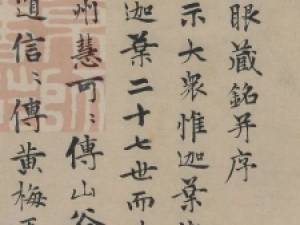 眼藏銘并序
示大衆惟迦葉
迦葉二十七世而
州慧可可傳山谷
道信信傳黄梅